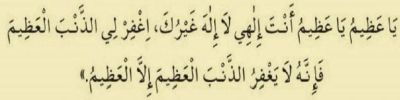 يَا عَظِيمُ يَا عَظِيمُ أَنْتَ إِلٰهِي لَا إِلٰهَ غَيْرُكَ، اِغْفِرْ لِي الذَّنْبَ الْعَظِيمَ
فَإِنَّهُ لَا يَغْفِرُ الذَّنْبَ الْعَظِيمَ إِلَّا الْعَظِيمُ.»